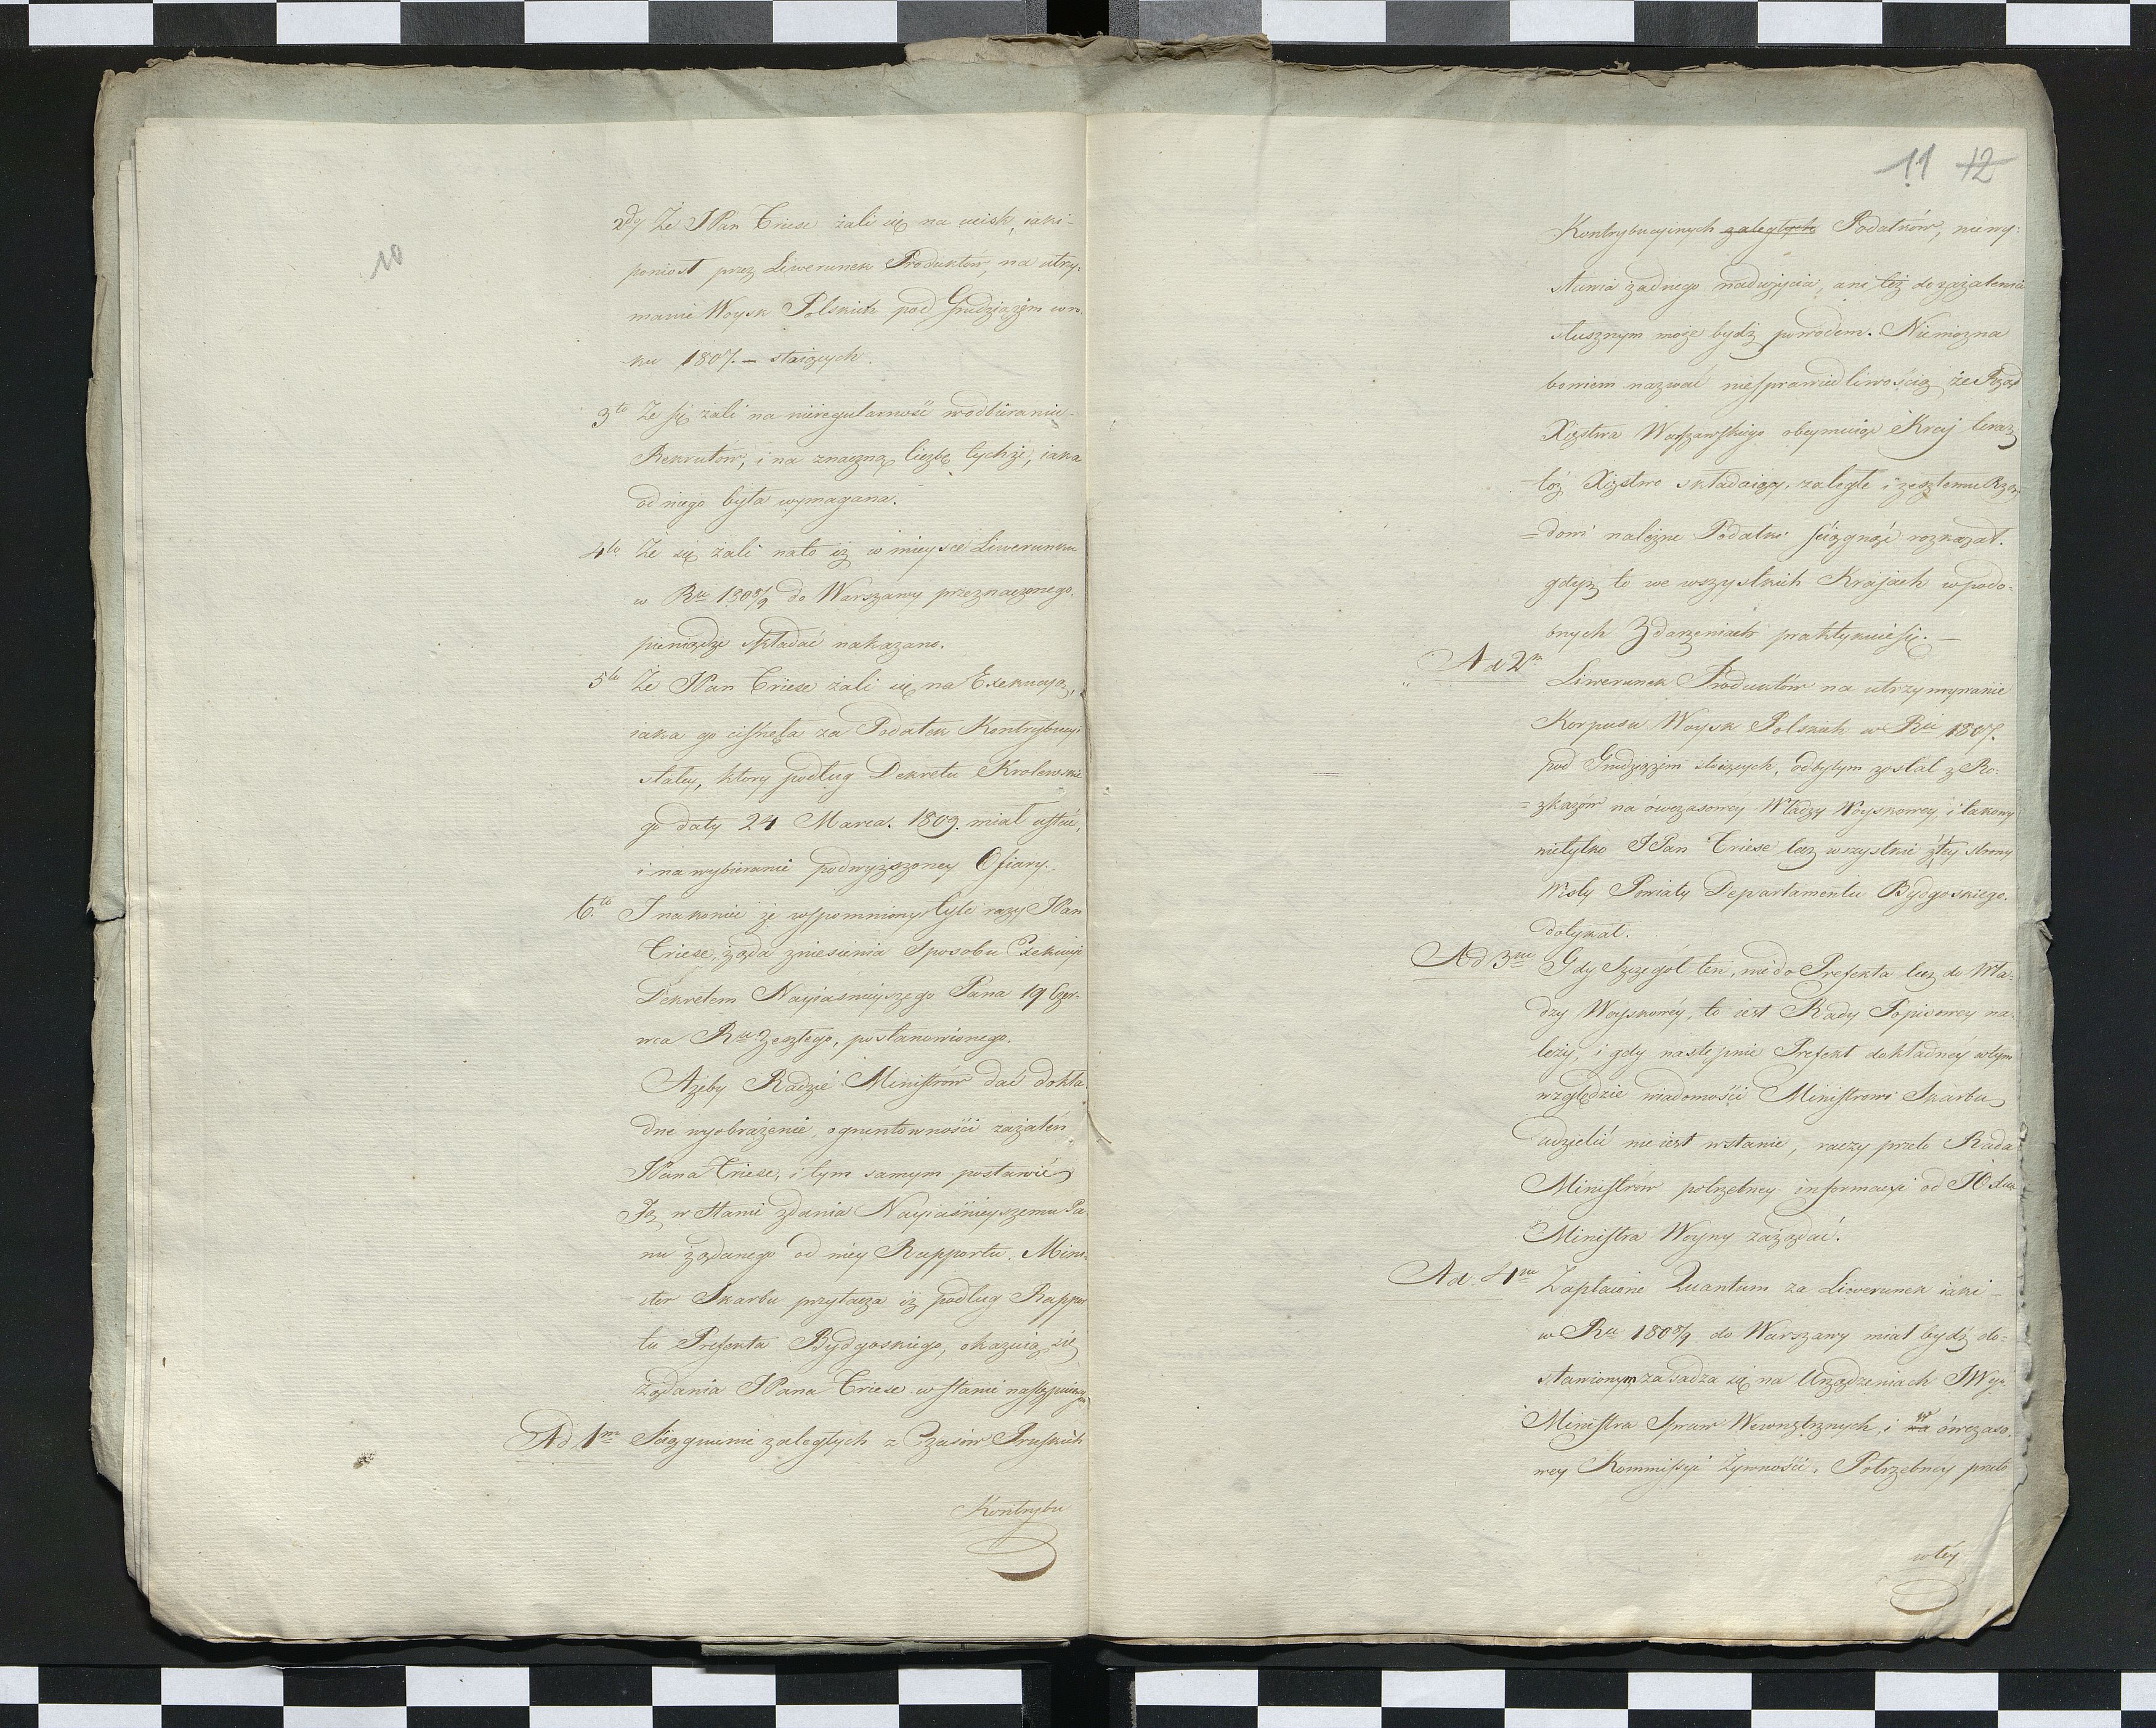 10
2do Że JPan Triese żali się na ucisk, iaki-
poniosł przez Liwerunek Produktów, na utrzy:
manie Woysk Polskich pod Grudziążem w ro
ku 1807. – stoiących.
3tio Że się żali na nieregularność w odbieraniu-
Rekrutów, i na znaczną liczbę tychże, iaka
od niego była wymagana.
4to Że się żali na to iż w mieysce Liwerunku
w Ru 1808/9 do Warszawy przeznaczonego,
pieniądze składać nakazano.
5to Że JPan Triese żali się na Exekucyą,
iaka go cisnęła za Podatek Kontrybucyi
stałey, ktory podług Dekretu Krolewskie
go daty 24 Marca. 1809. miał ustać,
i na wybieranie podwyższoney Ofiary.
6to I nakoniec że wspomniony tyle razy JPan
Triese, żąda zniesienia Sposobu Exekucyi
Dekretem Nayiasnieyszego Pana 19 Czer-
wca Ru Zeszłego, postanowionego.
Ażeby Radzie Ministrów dać dokła
dne wyobrażenie, o gruntowności zażaleń
JPana Triese, i tym samym postawić
Ją w stanie zdania Nayiaśnieyszemu Pa
nu żądanego od niey Rapportu. Mini-
ster Skarbu przytacza iż podług Rappor
tu Prefekta Bydgoskiego, okazuią się
żądania JPana Triese w stanie następuiącym
Ad 1m Sciągnienie zaległych z Czasów Pruskich
Kontrybu
11 12
Kontrybucyinych zaległych Podatków, niewy:
stawia żadnego nadużycia, ani też do zażalenia
słusznym może bydź powodem. Niemożna
bowiem nazwać niesprawiedliwością że Rząd
Xięstwa Warszawskiego obeymuiąc Kray teraz
toż Xięstwo składaiący, zaległe i zeszłemu Rzą
=dowi należne Podatki sciągnąć rozkazał.
gdyż to we wszystkich Krajach w podo-
bnych Zdarzeniach praktykuie się. –
Ad 2m Liwerunek Produktów na utrzymywanie
Korpusu Woysk Polskich w Ru 1807.
pod Grudziążem stoiących, odbytym został z Ro:
=zkazów na ówczasowey Władzy Woyskowey, i takowy
nietylko JPan Triese lecz wszystkie z tey strony
Wisły Powiaty Departamentu Bydgoskiego.
dotykał.
Ad 3m Gdy Szczegoł ten, nie do Prefekta lecz do Wła-
dzy Woyskowéy, to iest Rady Popisowey na-
leży, i gdy następnie Prefekt dokładney w tym
względzie wiadomości Ministrowi Skarbu
udzielić nie iest w stanie, raczy przeto Rada
Ministrów potrzebney informacyi od JO Xcia
Ministra Woyny zażądać.
Ad. 4m Zapłacone Quantum za Liwerunek iaki-
w Ru 1808/9 do Warszawy miał bydź do=
stawionym zasadza się na Urządzeniach JWgo
Ministra Spraw Wewnętrznych, i na ówczaso.
wey Kommissyi Żywności. Potrzebney przeto
w téy